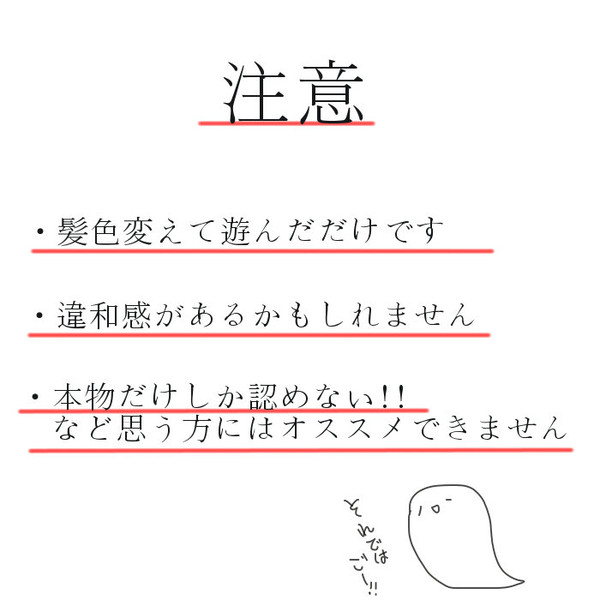 注意
・髪色変えて遊んだだけです
・違和感があるかもしれません
・本物だけしか認めない!!
など思う方にはオススメできません
それでは
ごー!!